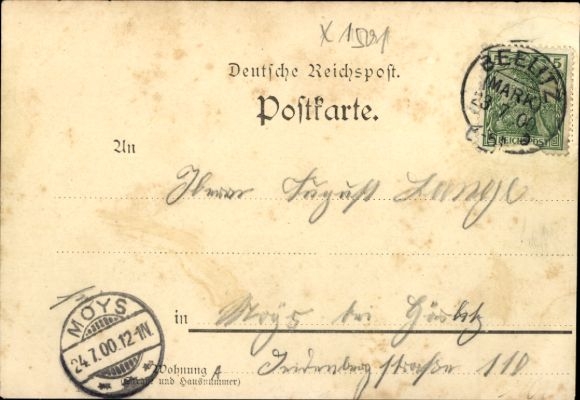 X 1501
Deutsche Reichspost.
Postkarte.
5
REICHSPOST
BEELITZ
(MARK)
An
Herrn August Lange
in Moÿs bei Görlitz
MOYS
24.7.00.12-1N
Wohnung Seidenberg straße 110
(Straße und Hausnummer)